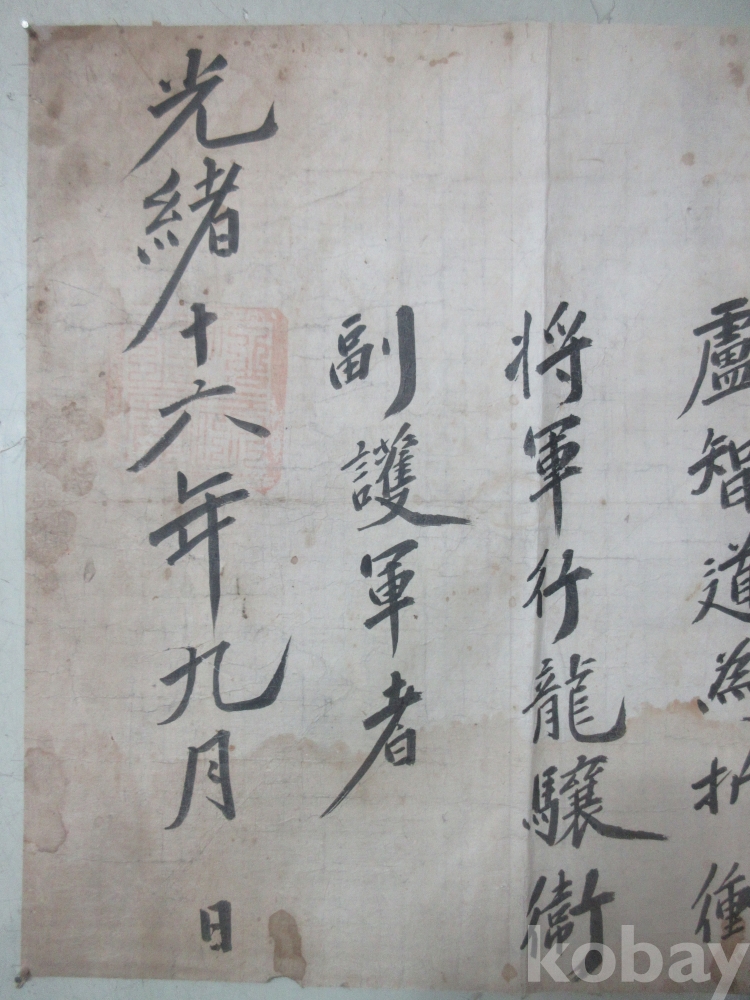 盧智道為折衝
将軍行龍驤衛
副護軍者
光緒十六年九月 日
kobay